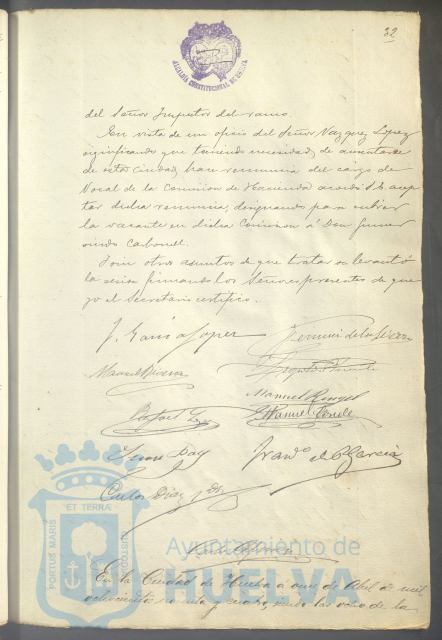 32
ALCALDÍA CONSTITUCIONAL DE HUELVA
del Señor Inspector del ramo.
En vista de un oficio del Señor Vazquez Lopez
significando que teniendo necesidad de ausentarse
de esta Ciudad, hace renuncia del cargo de
Vocal de la Comision de Hacienda acordó S.E. acep
tar dicha renuncia, designando para cubrir
la vacante en dicha Comision á Don Gumer
sindo Carbonell.
Y sin otros asuntos de que tratar se levantó
la sesion firmando los Señores presentes de que
yo el Secretario certifico.
J. García Lopez
Manuel
Manuel Rengel
Rafael
Manuel
Juan Day
Franco. de P. García
Carlos Diaz
PORTUS MARIS
ET TERRAE
CUSTODIA
Ayuntamiento de
HUELVA
En la Ciudad de Huelva á once de Abril de mil
ochocientos noventa y siendo las ocho de la